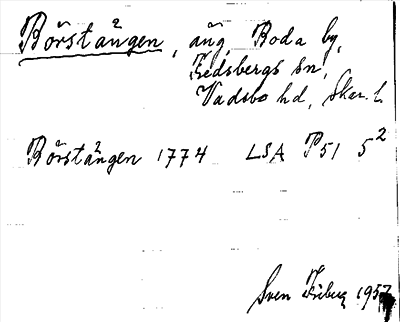 Börstången, äng, Boda by,
Fredsbergs sn,
Vadsbo hd, Skar. l.
Börstången 1774 LSA P51 5²
Sven Friberg 1957